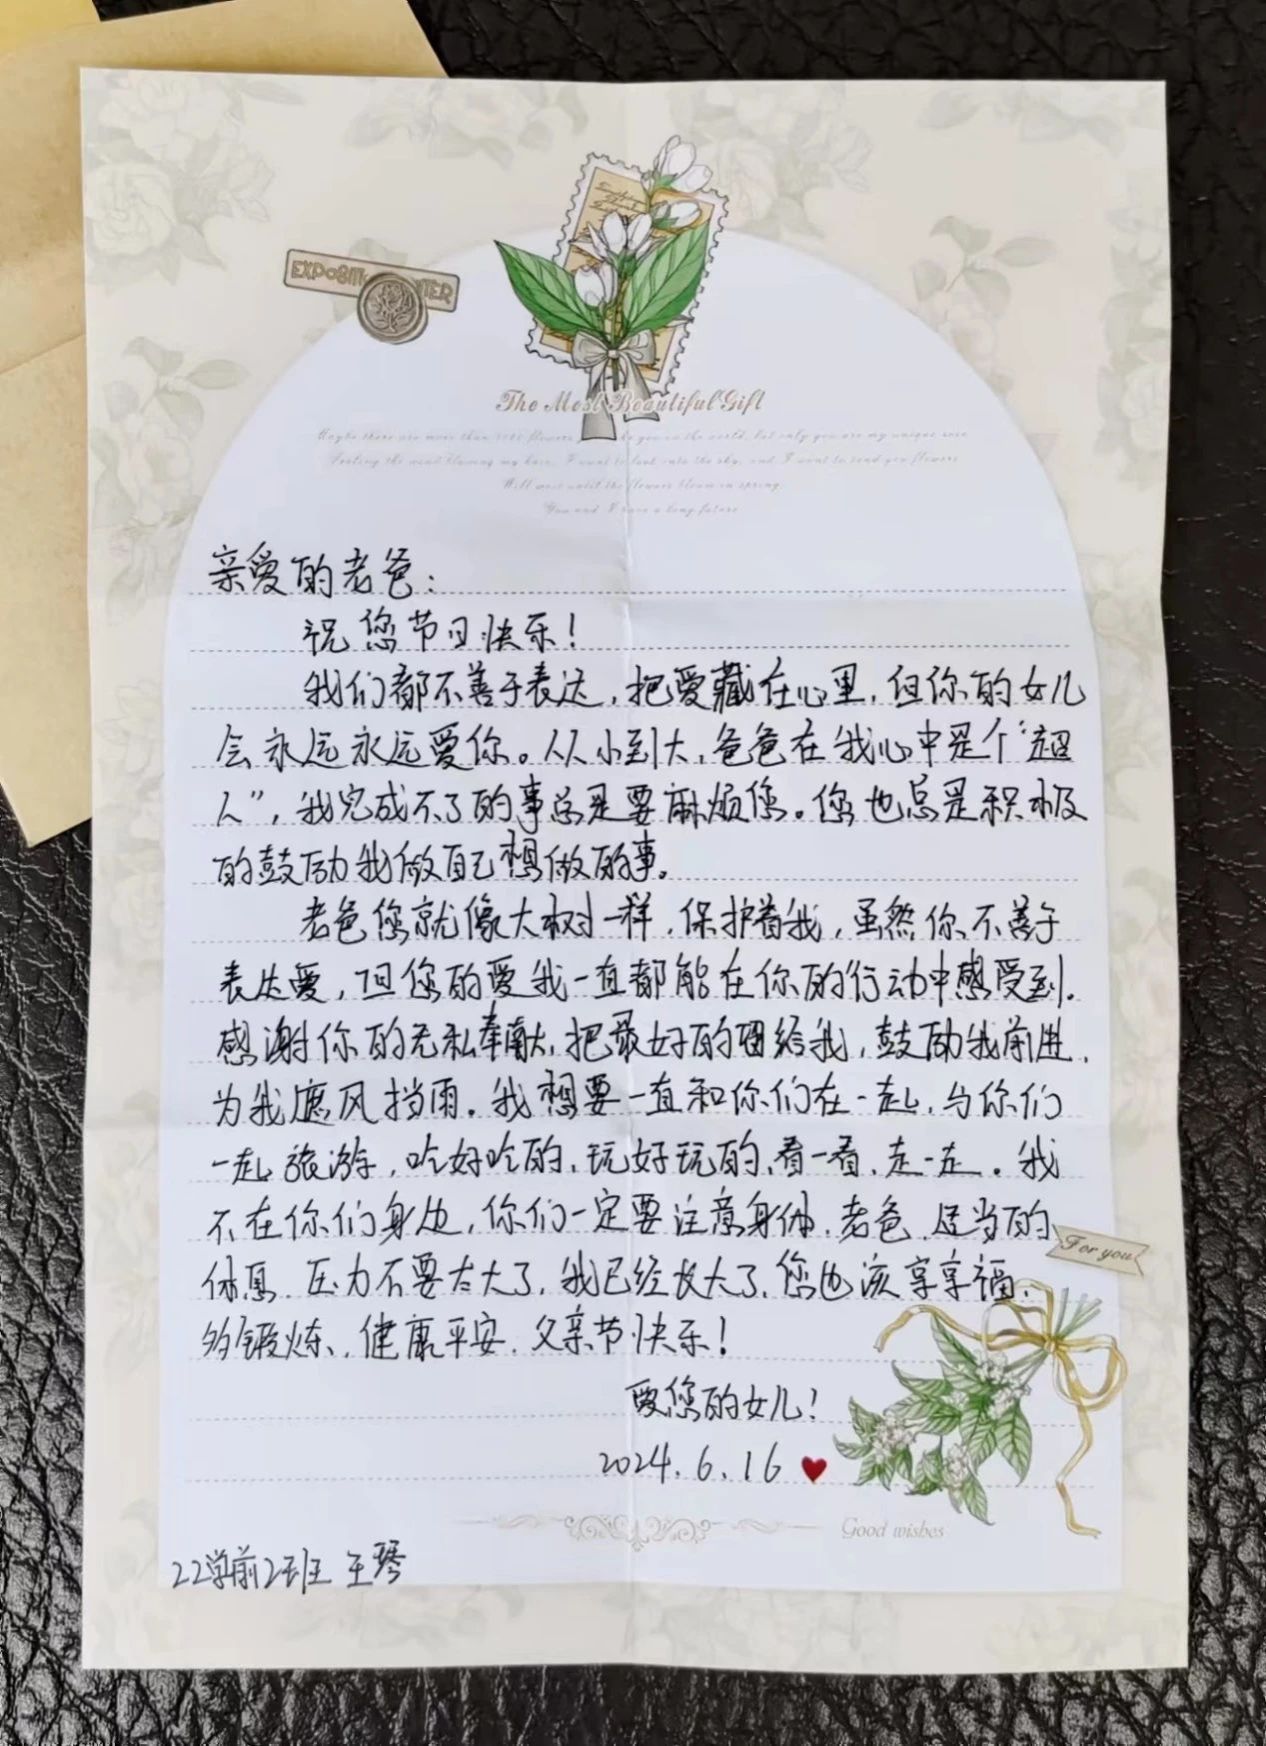 EXPOSITI TER
The Most Beautiful Gift
Maybe there are more than 5000 flowers like you in the world, but only you are my unique rose
Feeling the wind blowing my hair, I want to look into the sky, and I want to send you flowers
Will wait until the flowers bloom in spring.
You and I have a long future
亲爱的老爸：
祝您节日快乐！
我们都不善于表达，把爱藏在心里，但你的女儿
会永远永远爱你。从小到大，爸爸在我心中是个“超
人”，我完成不了的事总是要麻烦您。您也总是积极
的鼓励我做自己想做的事。
老爸您就像大树一样，保护着我，虽然你不善于
表达爱，但您的爱我一直都能在你的行动中感受到。
感谢你的无私奉献，把最好的留给我，鼓励我前进，
为我遮风挡雨。我想要一直和你们在一起，与你们
一起旅游，吃好吃的，玩好玩的，看一看，走一走。我
不在你们身边，你们一定要注意身体，老爸，适当的
休息，压力不要太大了，我已经长大了，您也该享享福，
多锻炼，健康平安，父亲节快乐！
爱您的女儿！
2024.6.16
For you
Good wishes
22学前2班 王琴